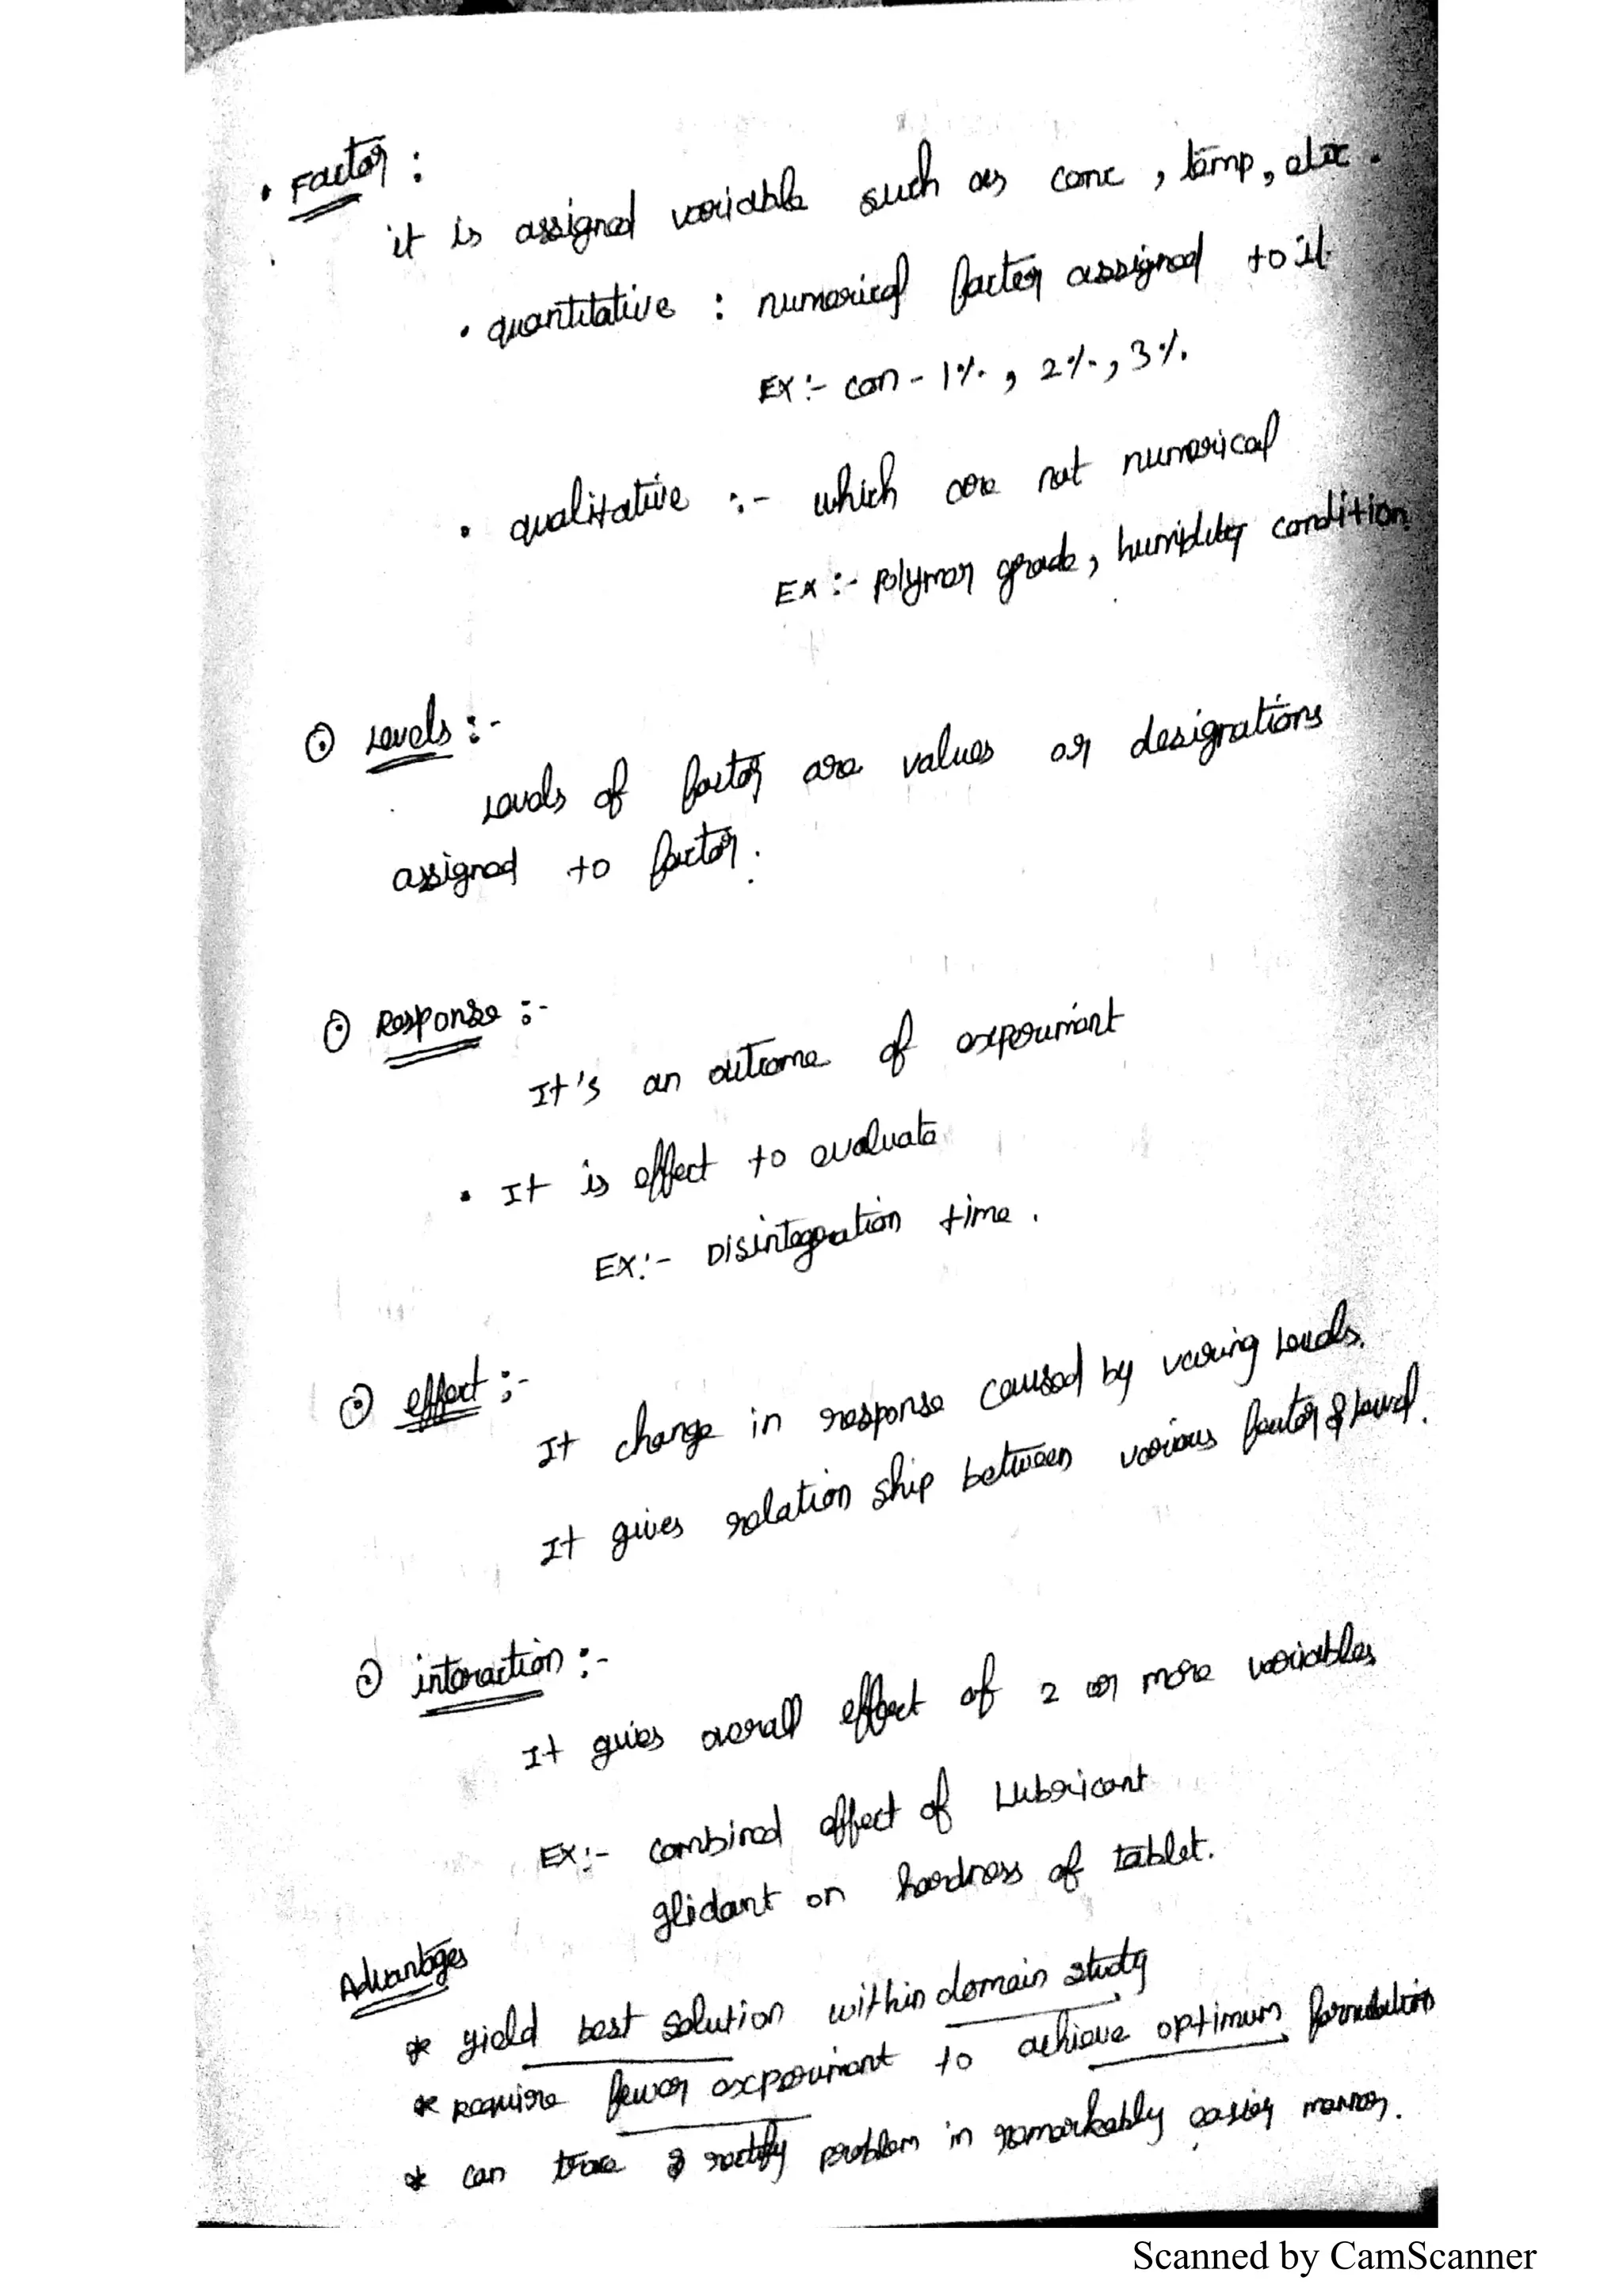 • Factor :
it is assigned variable such as conc , temp, etc .
• quantitative : numerical factor assigned to it
Ex :- con - 1% , 2% , 3%
• qualitative :- which are not numerical
Ex :- polymer grade, humidity condition.
⊙ Levels :-
Levels of factor are values or designations
assigned to factor .
⊙ Response :-
It's an outcome of experiment
• It is effect to evaluate
Ex :- Disintegration time .
⊙ effect :-
It change in response caused by varing Levels.
It gives relation ship between various factor & Level .
⊙ interaction :-
It gives overall effect of 2 or more variables
Ex :- combined effect of Lubricant
glidant on hardness of tablet .
Advantages
* yield best solution within domain study
* require fewer experiment to achieve optimum formulation
* can trace & rectify problem in remarkably easier manner .
Scanned by CamScanner